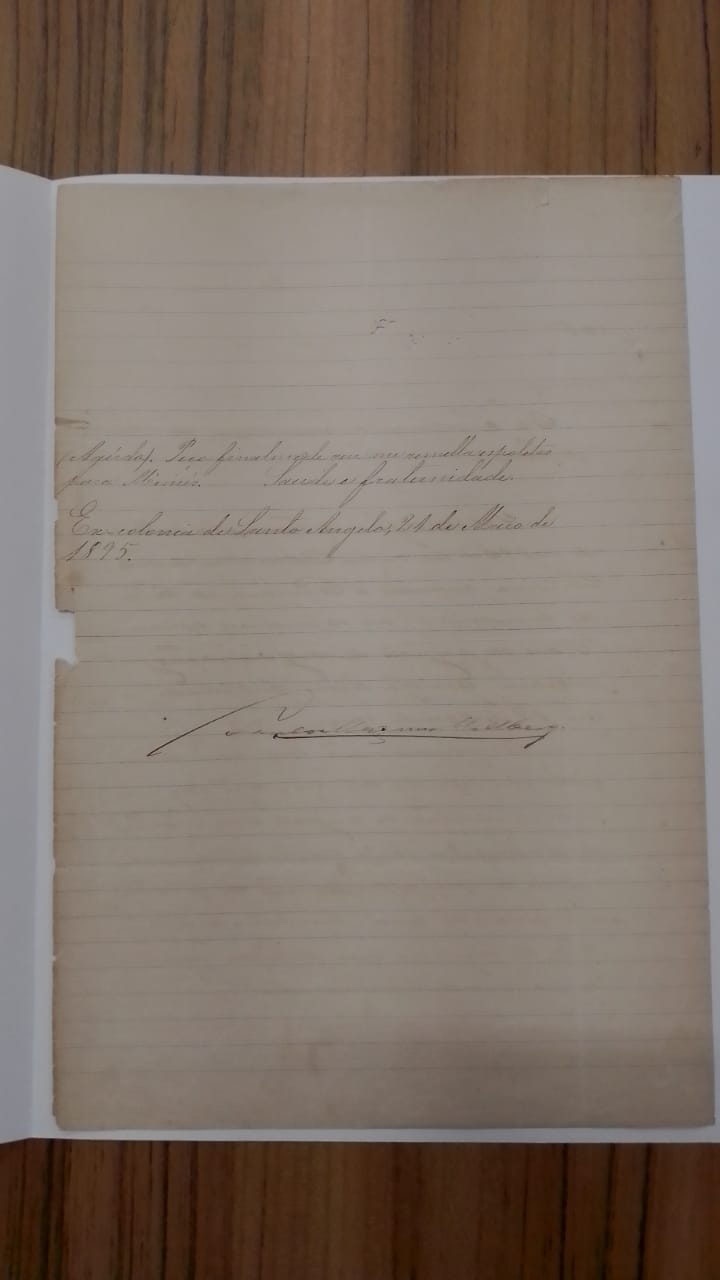 (Agúdo). Peço finalmente que me remetta espoletas
para Miniés. Saude e fraternidade.
Ex-colonia de Santo Angelo, 21 de Março de
1895.